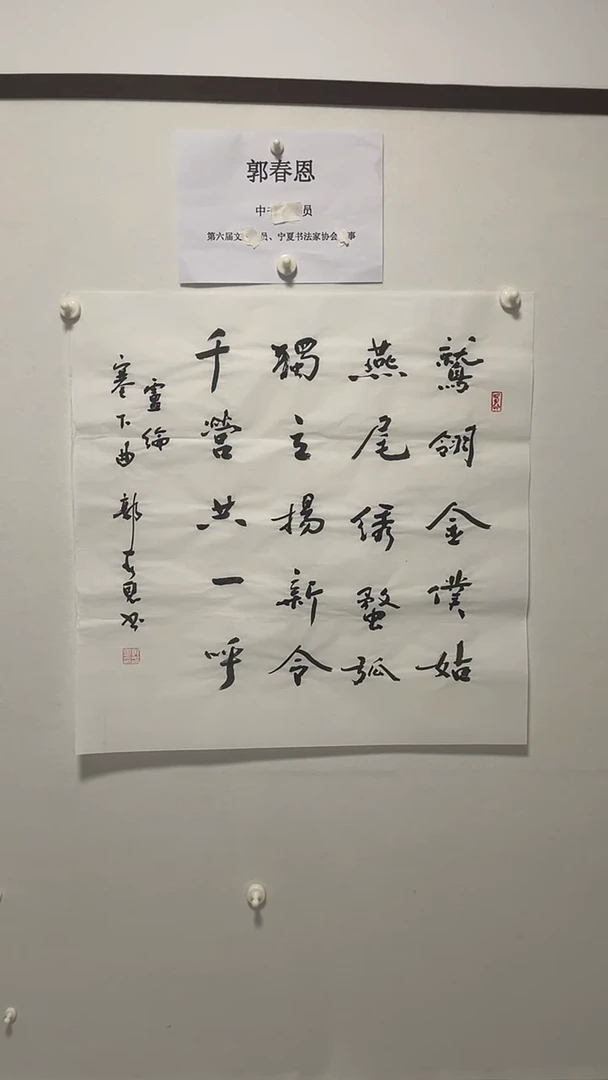 郭春恩
中 员
第六届文 员、宁夏书法家协会 事
鷲翎金僕姑
燕尾绣蝥弧
獨立揚新令
千營共一呼
盧綸
塞下曲 郭春恩书